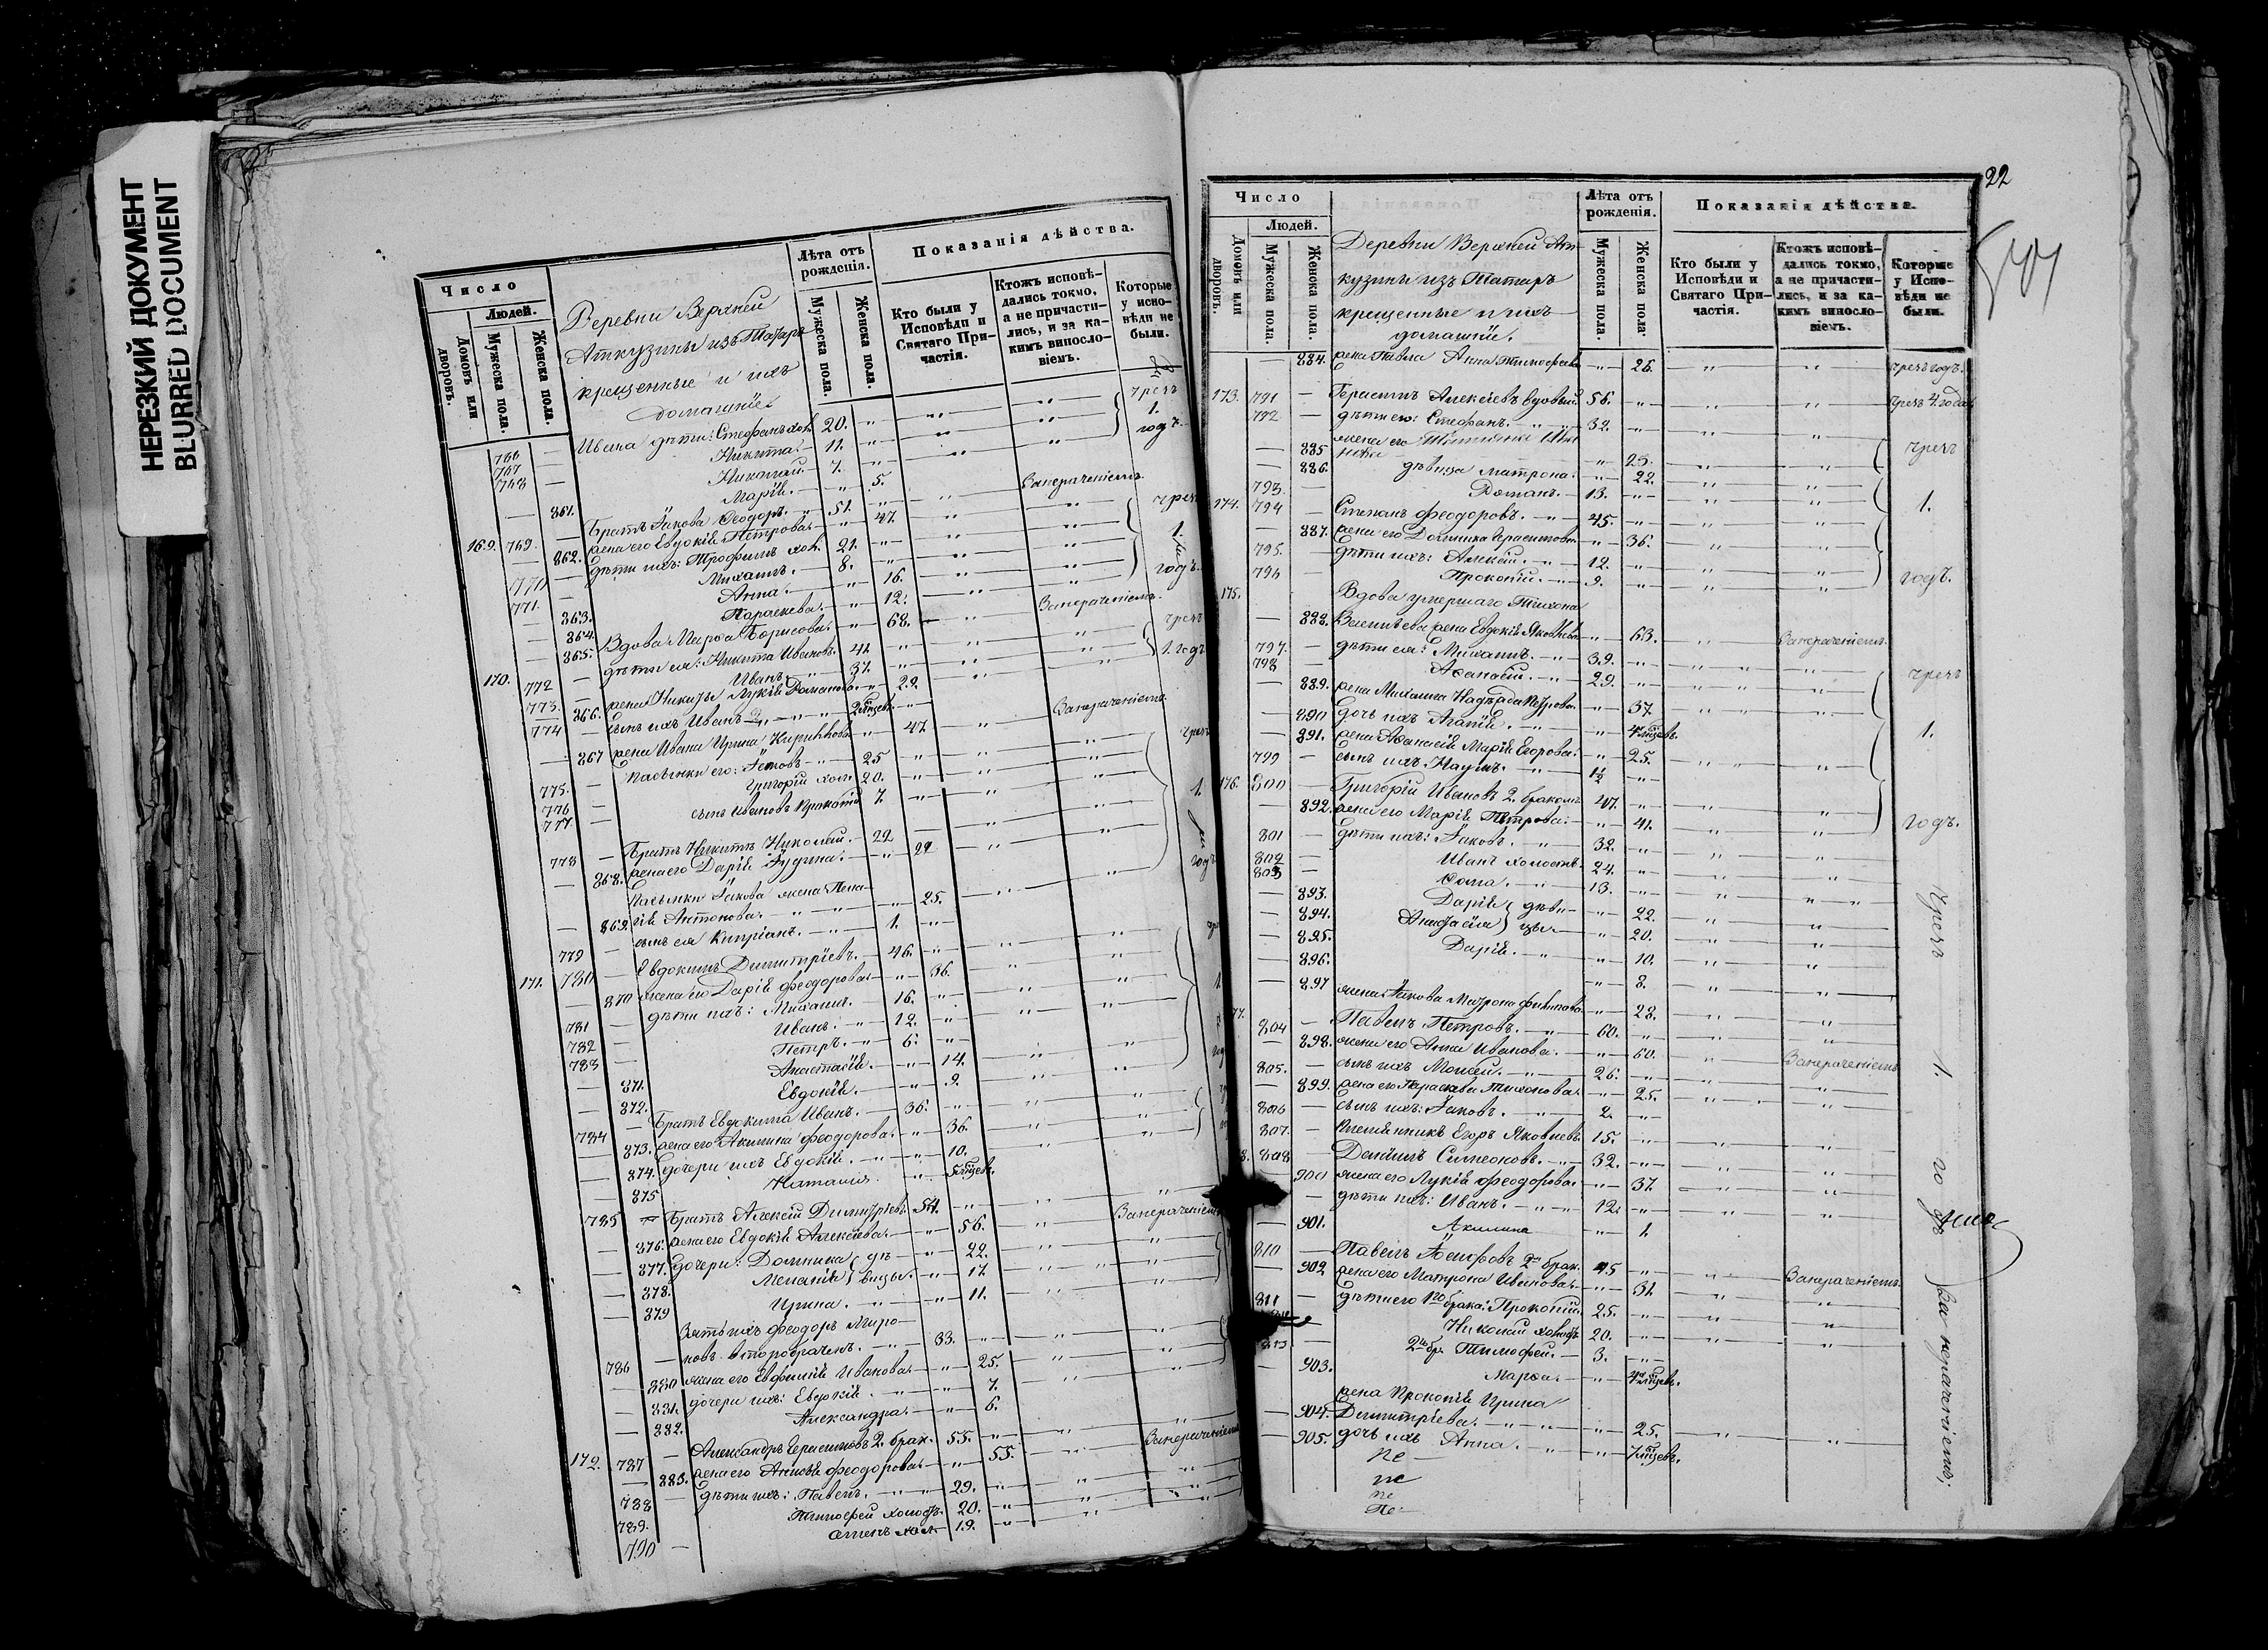 НЕРЕЗКИЙ ДОКУМЕНТ
BLURRED DOCUMENT
Число
Людей.
Домовъ или дворовъ.
Мужеска пола.
Женска пола
Деревни Верхней
Аткузины изъ Татаръ
крещенные и ихъ
домашніе
Лѣта отъ рожденія.
Мужеска пола.
Женска пола.
Показанія дѣйства.
Кто были у Исповѣди и Святаго Причастія.
Ктожъ исповѣдались токмо, а не причастились, и за какимъ винословіемъ.
Которые у исповѣди не были.
766 — Ивана дѣти: Стефанъ хол. 20. чрезъ
767 — Никита. 11. 1.
768 — Николай. 7. годъ.
— 861. Марія. 5.
169. 769. — Братъ Іакова Ѳеодоръ. 51. Занераченіемъ
— 862. жена его Евдокія Петрова. 47. чрезъ
770 — дѣти ихъ: Трофимъ хол. 21. 1.
771. — Михаилъ. 8. годъ.
— 863. Анна. 16.
— 864. Параскева. 12.
— 865. Вдова Марѳа Борисова. 68. Занераченіемъ
170. 772 — дѣти ея: Никита Ивановъ. 41. чрезъ
773. — Иванъ. 37. 1. годъ
— 866. жена Никиты Лукія Романова 22
774 — сынъ ихъ Иванъ
— 867 жена Ивана Ирина Кириллова 47. Занераченіемъ
775. — пасынки его: Іаковъ 25 чрезъ
776 — Григорій хол. 20.
777 — сынъ Ивановъ Прокопій 7. 1.
778 — Братъ Никиты Николай. 22
— 868. жена его Дарія Іудина. 22 годъ
Пасынка Іакова жена Пела-
— 869. гія Антонова. 25.
779 — сынъ ея Кипріанъ. 1.
171. 780 — Евдокимъ Димитріевъ. 46.
— 870 жена его Дарія Ѳеодорова 36.
781 — дѣти ихъ: Михаилъ. 16.
782 — Иванъ. 12.
783 — Петръ. 6.
— 871. Анастасія. 14.
— 872. Евдокія. 9.
784 — Братъ Евдокима Иванъ. 36.
— 873. жена его Акилина Ѳеодорова. 36.
— 874. дочери ихъ Евдокія. 10.
— 875 Наталія
785 — Братъ Алексій Димитріевъ 54.
— 876. жена его Евдокія Алексѣева 56. Занераченіемъ
— 877. дочери: Домника } дѣ- 22.
— 878. Меланія } вицы. 17
— 879 Ирина. 11.
Зять ихъ Ѳеодоръ Миро-
786 — новъ второбраченъ. 33.
— 880 жена его Евфимія Иванова 25.
— 881. дочери ихъ: Евдокія. 7.
— 882. Александра. 6.
172. 787 — Александръ Герасимовъ 2. брак. 55.
— 883. жена его Анисія Ѳеодорова 55. Занераченіемъ
788 — дѣти ихъ: Павелъ. 29.
789. — Тимоѳей холостъ. 20.
790 — хол. 19.
22
Число
Людей.
Домовъ или дворовъ.
Мужеска пола.
Женска пола.
Деревни Верхней Ат-
кузины изъ Татаръ
крещенные и ихъ
домашніе.
Лѣта отъ рожденія.
Мужеска пола.
Женска пола.
Показанія дѣйства.
Кто были у Исповѣди и Святаго Причастія.
Ктожъ исповѣдались токмо, а не причастились, и за какимъ винословіемъ.
Которые у Исповѣди не были.
— 884. жена Павла Анна Тимоѳеева 26. чрезъ годъ.
173. 791 — Герасимъ Алексѣевъ вдовый 56. чрезъ 4. года
792 — дѣти его: Стефанъ. 32.
— 885 жена его 25. чрезъ
— 886. дѣвица Матрона. 22.
793. — Романъ. 13.
174. 794 — Степанъ Ѳеодоровъ. 45. 1.
— 887. жена его Домника Герасимова 36.
795. — дѣти ихъ: Алексій. 12.
796 — Прокопій. 9. годъ.
175. Вдова умершаго Тихона
— 888. Васильева жена Евдокія Яковлева 63. Занераченіемъ.
797. — дѣти ея: Михаилъ. 39.
798 — Аѳанасій. 29. чрезъ
— 889. жена Михаила Надежда Петрова 37.
— 890 дочь ихъ Агапія.
— 891. жена Аѳанасія Марія Егорова. 25. 1.
799 — сынъ ихъ Наумъ. 1½
176. 800 — Григорій Ивановъ 2. бракомъ 47.
— 892. жена его Марія Петрова. 41. годъ.
801 — дѣти ихъ: Іаковъ. 32.
802 — Иванъ холостъ. 24.
803 — Ѳома. 13.
— 893. Дарія } дѣви- 22.
— 894. Анастасія } цы. 20.
— 895. Дарія. 10.
— 896. 8.
— 897 жена Іакова Матрона Филипова 28.
177. 804 — Павелъ Петровъ. 60.
— 898. жена его Анна Иванова. 60. Занераченіемъ
805. — сынъ ихъ Моисей. 26.
— 899. жена его Параскева Тихонова 25.
806 — сынъ ихъ: Іаковъ. 2.
807. — племянникъ Егоръ Яковлевъ. 15.
808 — Даніилъ Симеоновъ. 32.
— 900 жена его Лукія Ѳеодорова 37.
— дѣти ихъ: Иванъ. 12.
— 901. Акилина 1.
810 — Павелъ Іосифовъ 2мъ брак. 45
— 902 жена его Матрона Иванова. 31. Занераченіемъ.
811 — дѣти его 1го брака: Прокопій. 25.
— Николай холостъ 20.
813 — 2го бр. Тимоѳей. 3.
— 903. Марѳа.
жена Прокопія Ирина
— 904. Димитріева. 25.
— 905. дочь ихъ Анна.
чрезъ 1. годъ
За нераченіемъ;